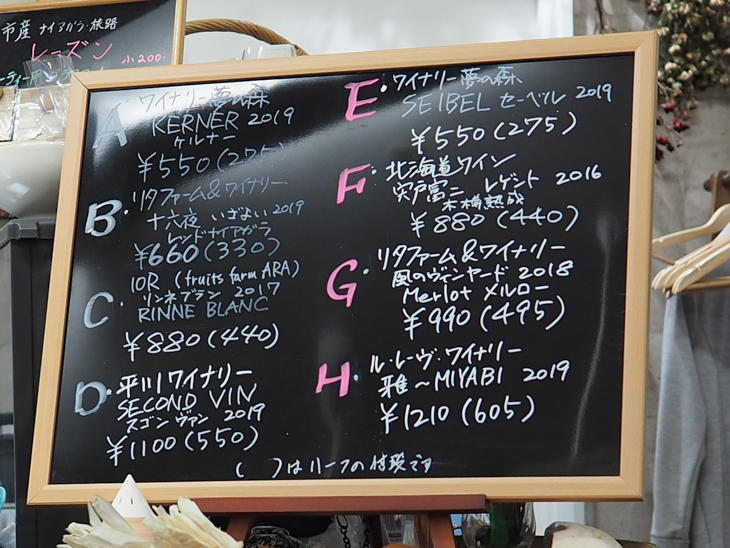 市産 ナイアガラ・旅路
レーズン
小200.
A. ワイナリー夢の森
KERNER 2019
ケルナー
¥550(275)
B. リタファーム&ワイナリー
十六夜 いざよい 2019
レッドナイアガラ
¥660(330)
C. 10R (fruits farm ARA)
リンネブラン 2017
RINNE BLANC
¥880(440)
D. 平川ワイナリー
SECOND VIN
スゴン ヴァン 2019
¥1100(550)
E. ワイナリー夢の森
SEIBEL セーベル 2019
¥550(275)
F. 北海道ワイン
宍戸富二 レゲント 2016
木樽熟成
¥880(440)
G. リタファーム&ワイナリー
風のヴィンヤード 2018
Merlot メルロー
¥990(495)
H. ル・レーヴ・ワイナリー
雅~MIYABI 2019
¥1210(605)
( )はハーフの値段です